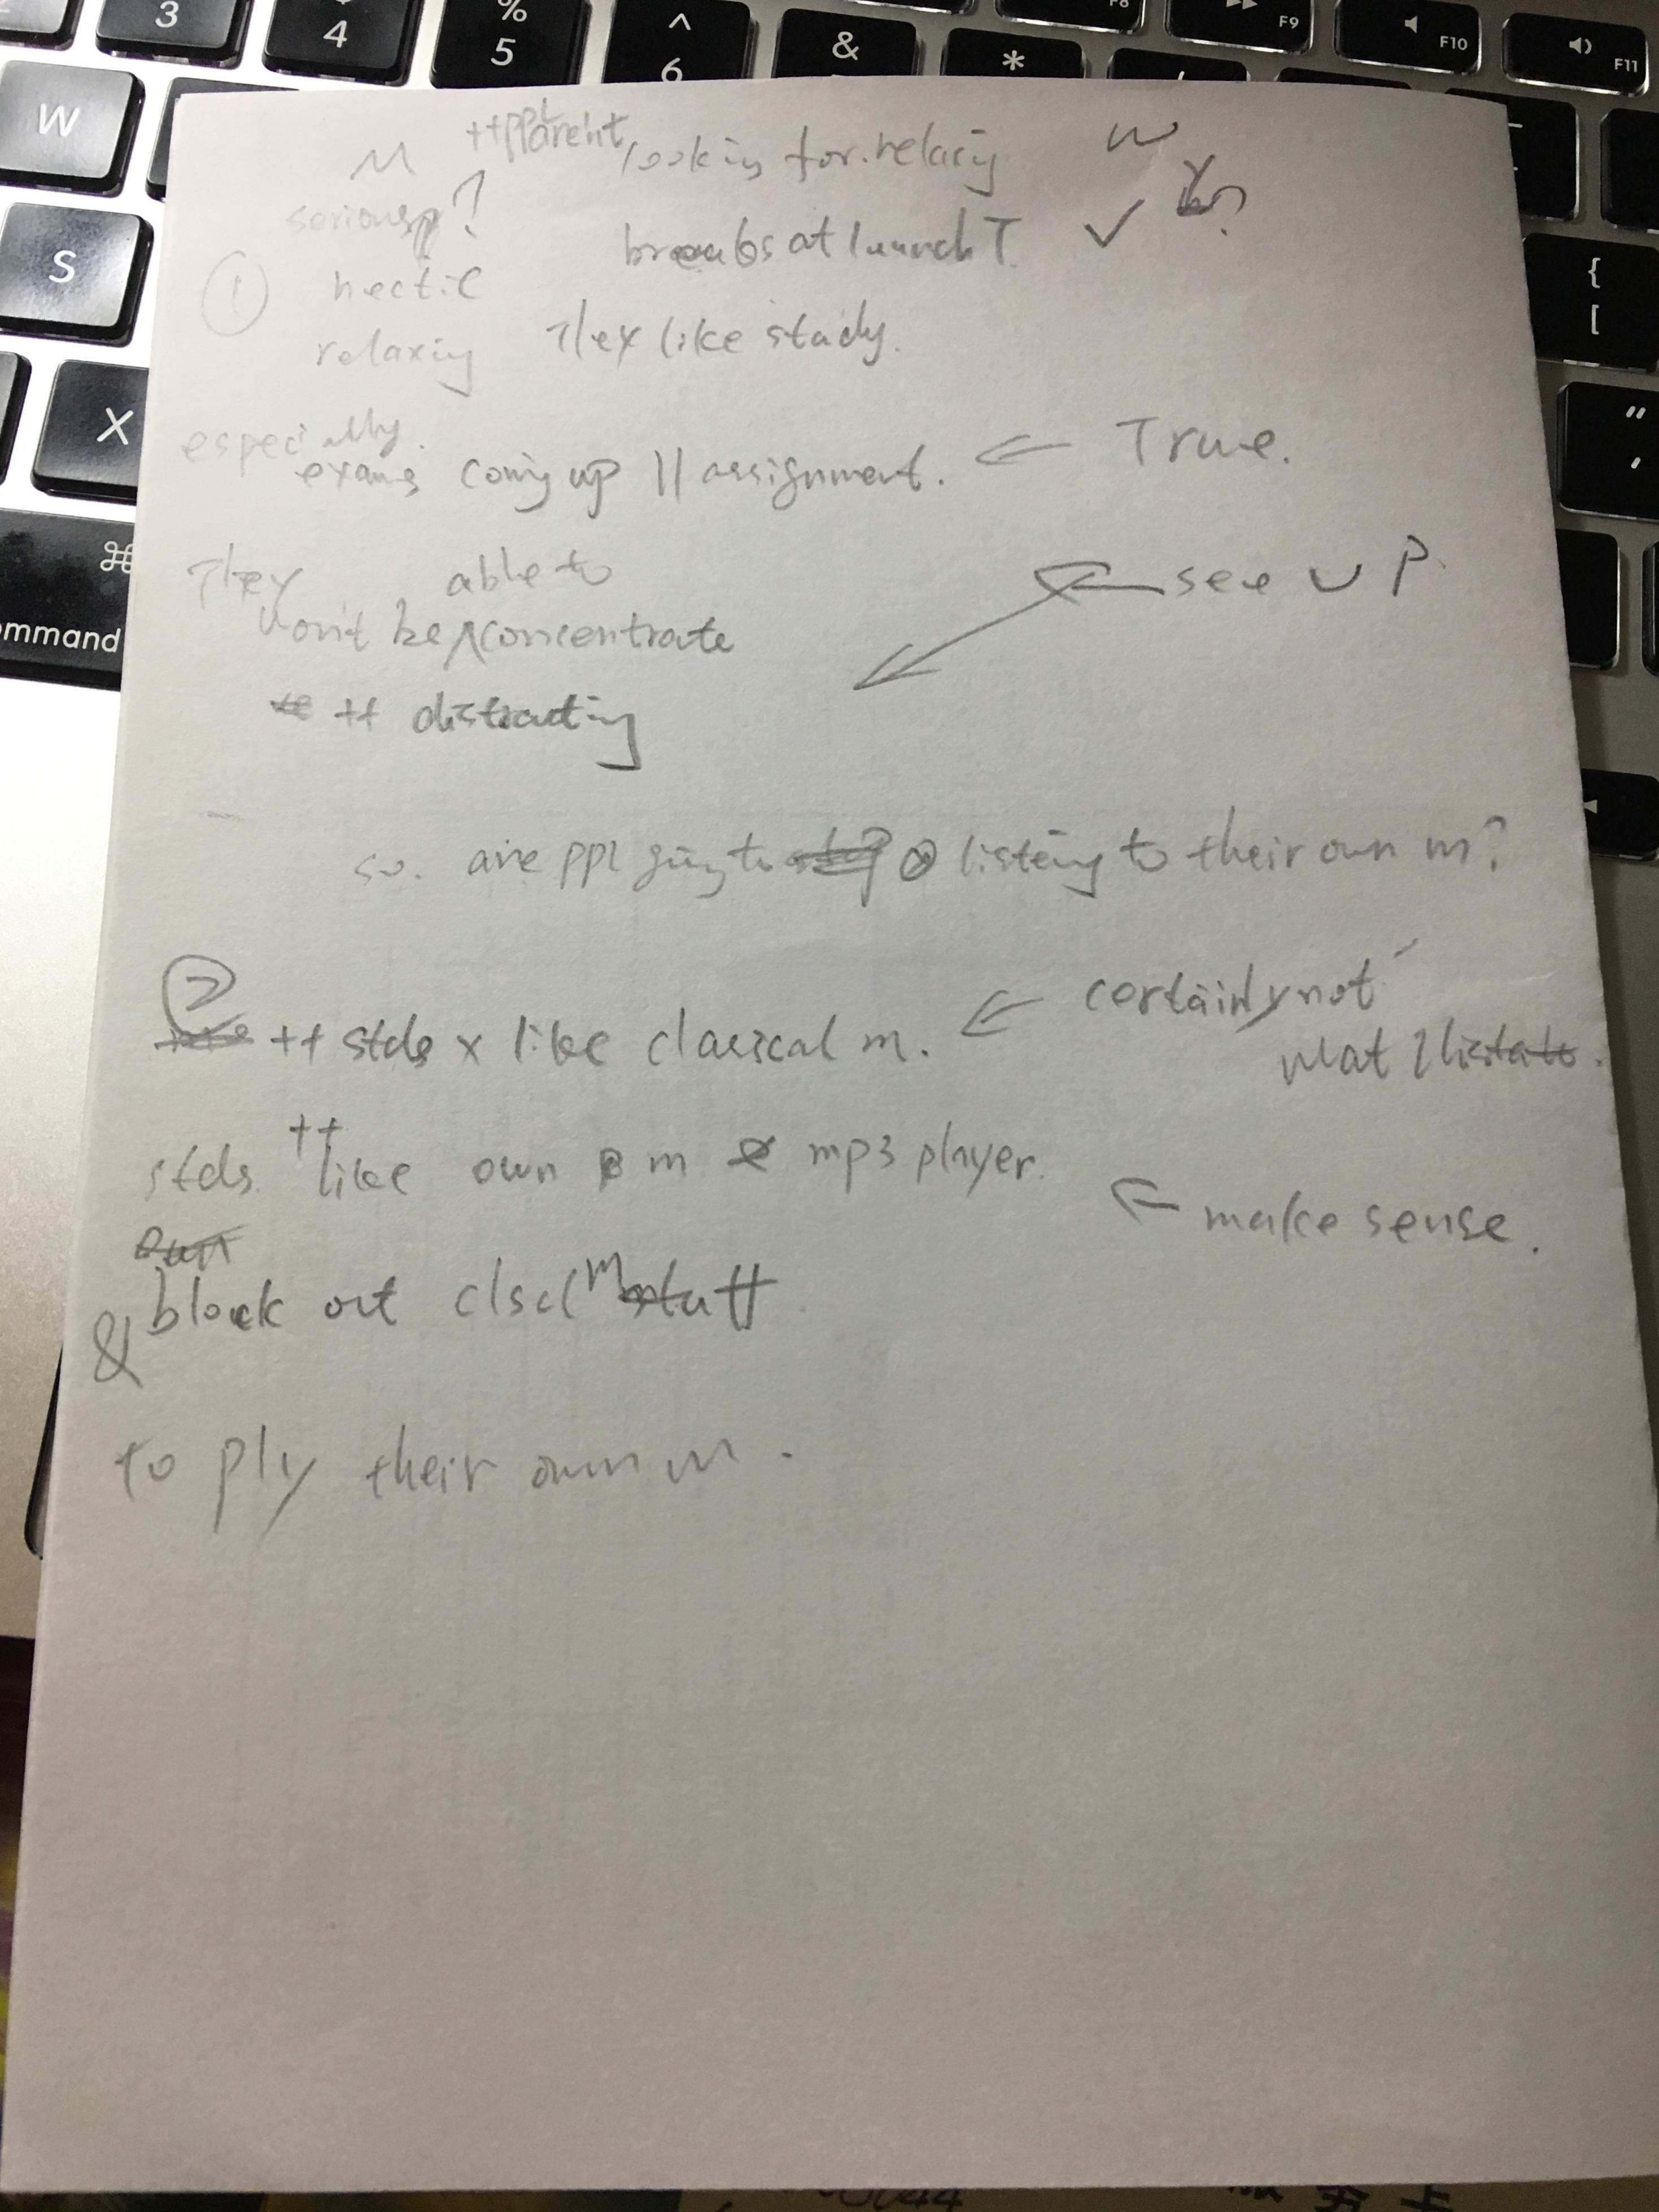 3
4
%
5
^
6
&
*
F8
F9
F10
F11
W
S
X
{
[
"
,
⌘
mmand
M
++ppl
arent looking for relaxig
W
serious ?
breaks at launch T ✓ Y
①
hectic
relaxiy They like study.
especially
exams coming up || assignment. ← True.
They able to
won't be ∧ concentrate
← see u P
++ distracting
so. are ppl going to listeing to their own m?
②
++ stds x like clasical m. ← certainly not
what I listento.
stds ++ like own m mp3 player.
← make sense.
& block out clscl m
to ply their own m.